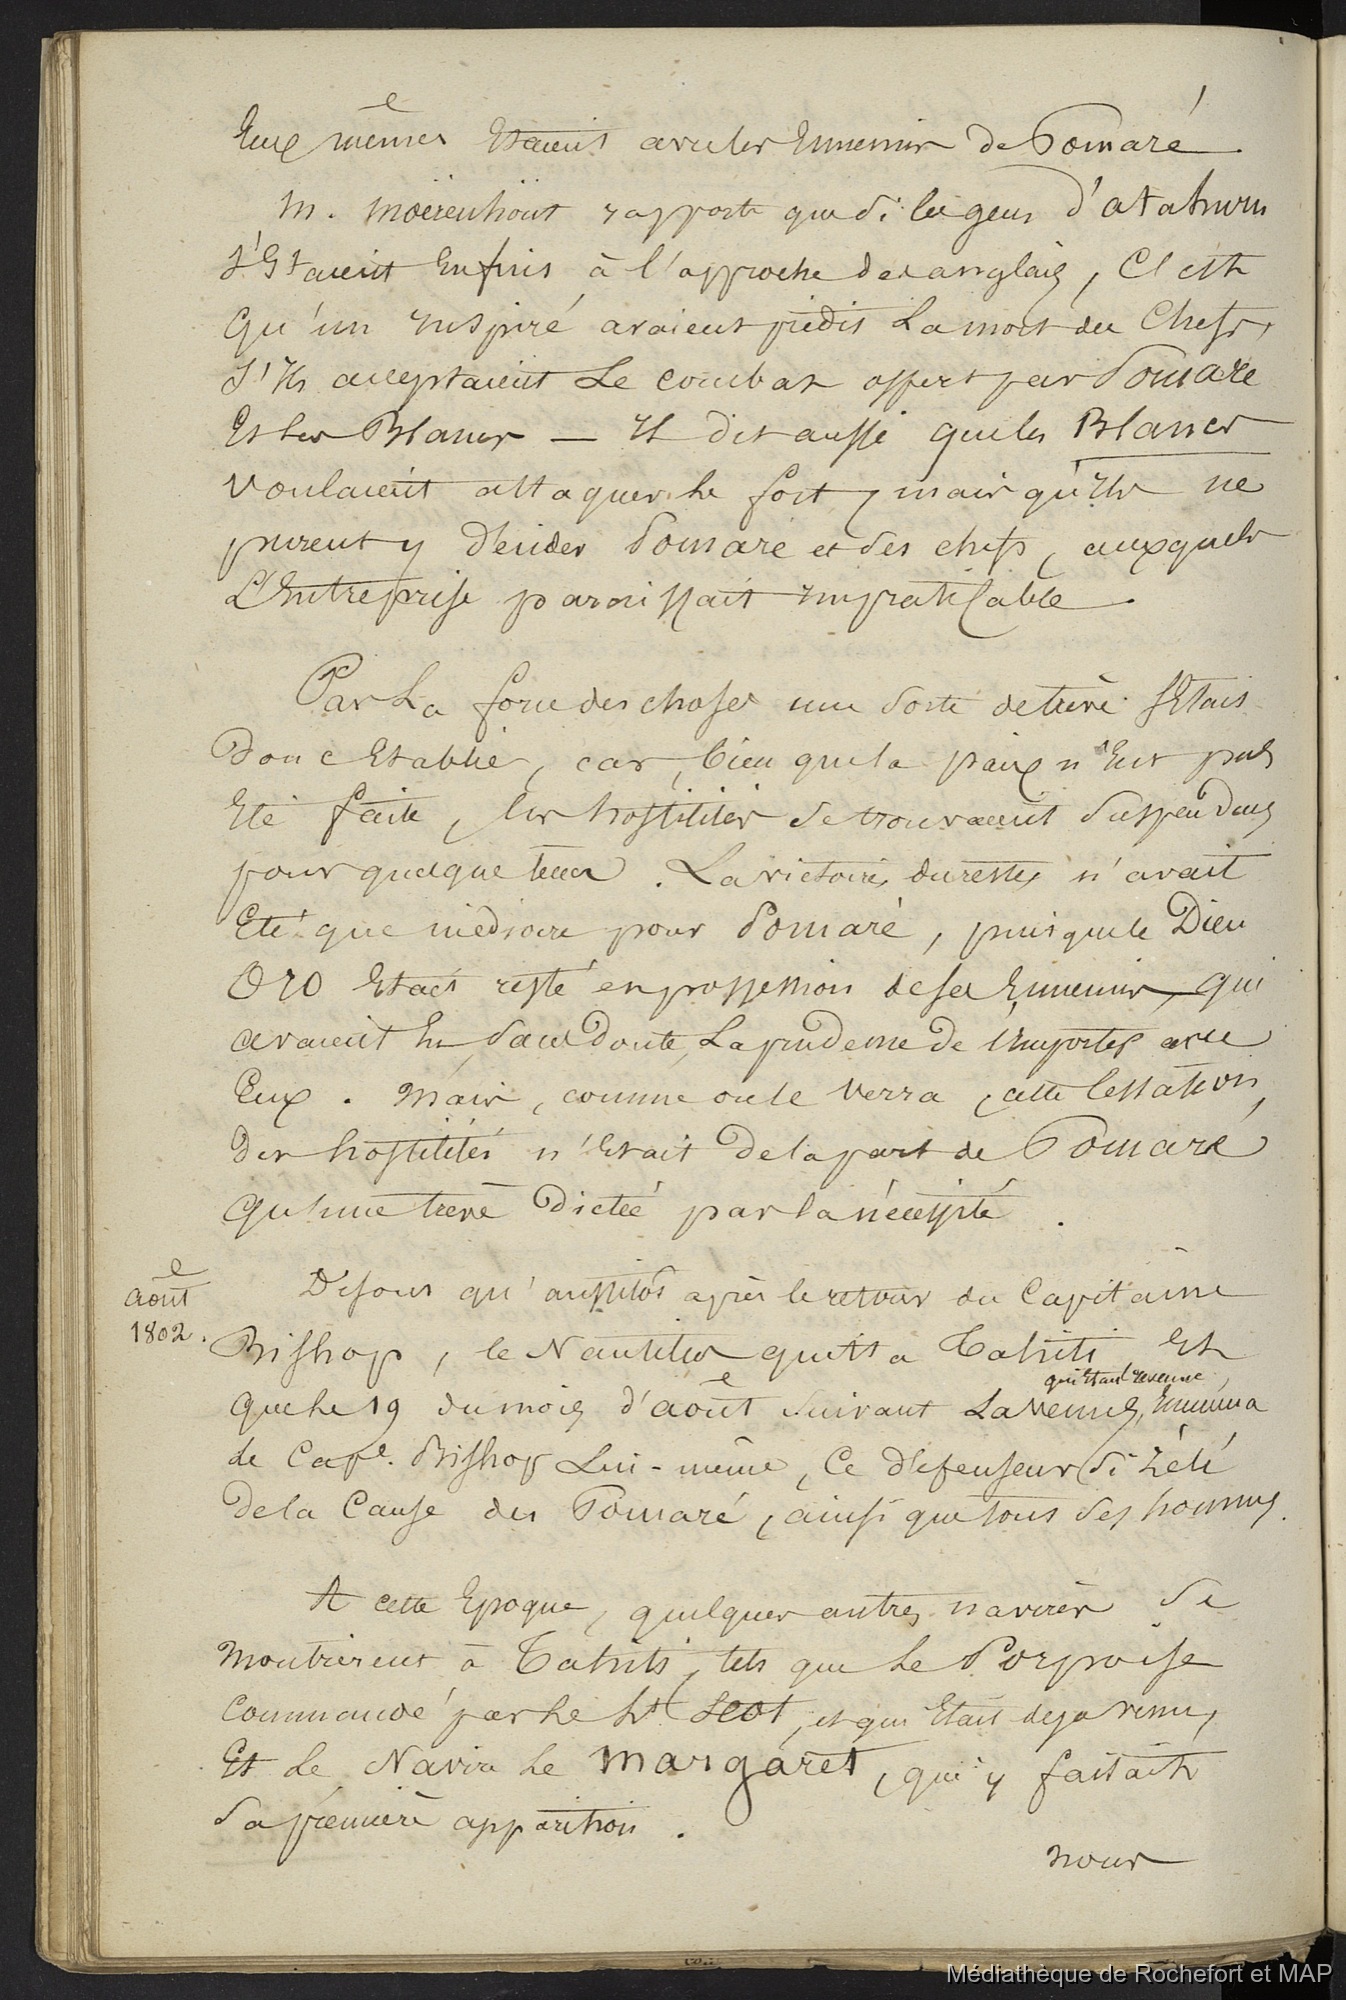 Eux mêmes Etaient avec les Ennemis de Pomaré.
M. Moërenhout rapporte que si les gens d'atahuru
s'Etaient Enfuis à l'approche des anglais, C'est
qu'un Inspiré avaient prédit La mort des Chefs,
s'Ils acceptaient Le combat offert par Pomare
Et les Blancs — Il dit aussi que les Blancs
voulaient attaquer le fort, mais qu'Ils ne
purent y décider Pomaré et ses chefs, auxquels
L'Entreprise paroissait Impraticable.
Par La force des choses une sorte de trève s'Etait
Donc Etablie, car, bien que la paix n'Eut pas
Eté faite, les hostilités se trouvaient suspendues
pour quelque tems. La victoire, du reste, n'avait
Eté que médiocre pour Pomaré, puisque le Dieu
Oro Etait resté en possession de ses Ennemis, qui
avaient Eu sans Doute, La prudence de l'Emporter avec
Eux. Mais, comme on le verra, cette Cessation
Des hostilités n'Etait De la part de Pomaré
qu'une treve Dictée par la nécessité.
août
1802.
Disons qu'aussitôt après le retour du Capitaine
Bishop, le Nautilus quitta Tahiti Et
que le 19 du mois d'août suivant La Venus, qui Etait revenue, Emmena
le Cape. Bishop Lui-même, Ce défenseur si zélé
De la Cause des Pomaré, ainsi que tous ses hommes.
A cette Epoque, quelques autres navires se
montrèrent à Tahiti, tels que Le Porpoise
Commandé par Le Lt Scot, et qui Etait deja venu,
Et Le Navire Le Margaret, qui y faisait
Sa première apparition.
nous
Médiathèque de Rochefort et MAP